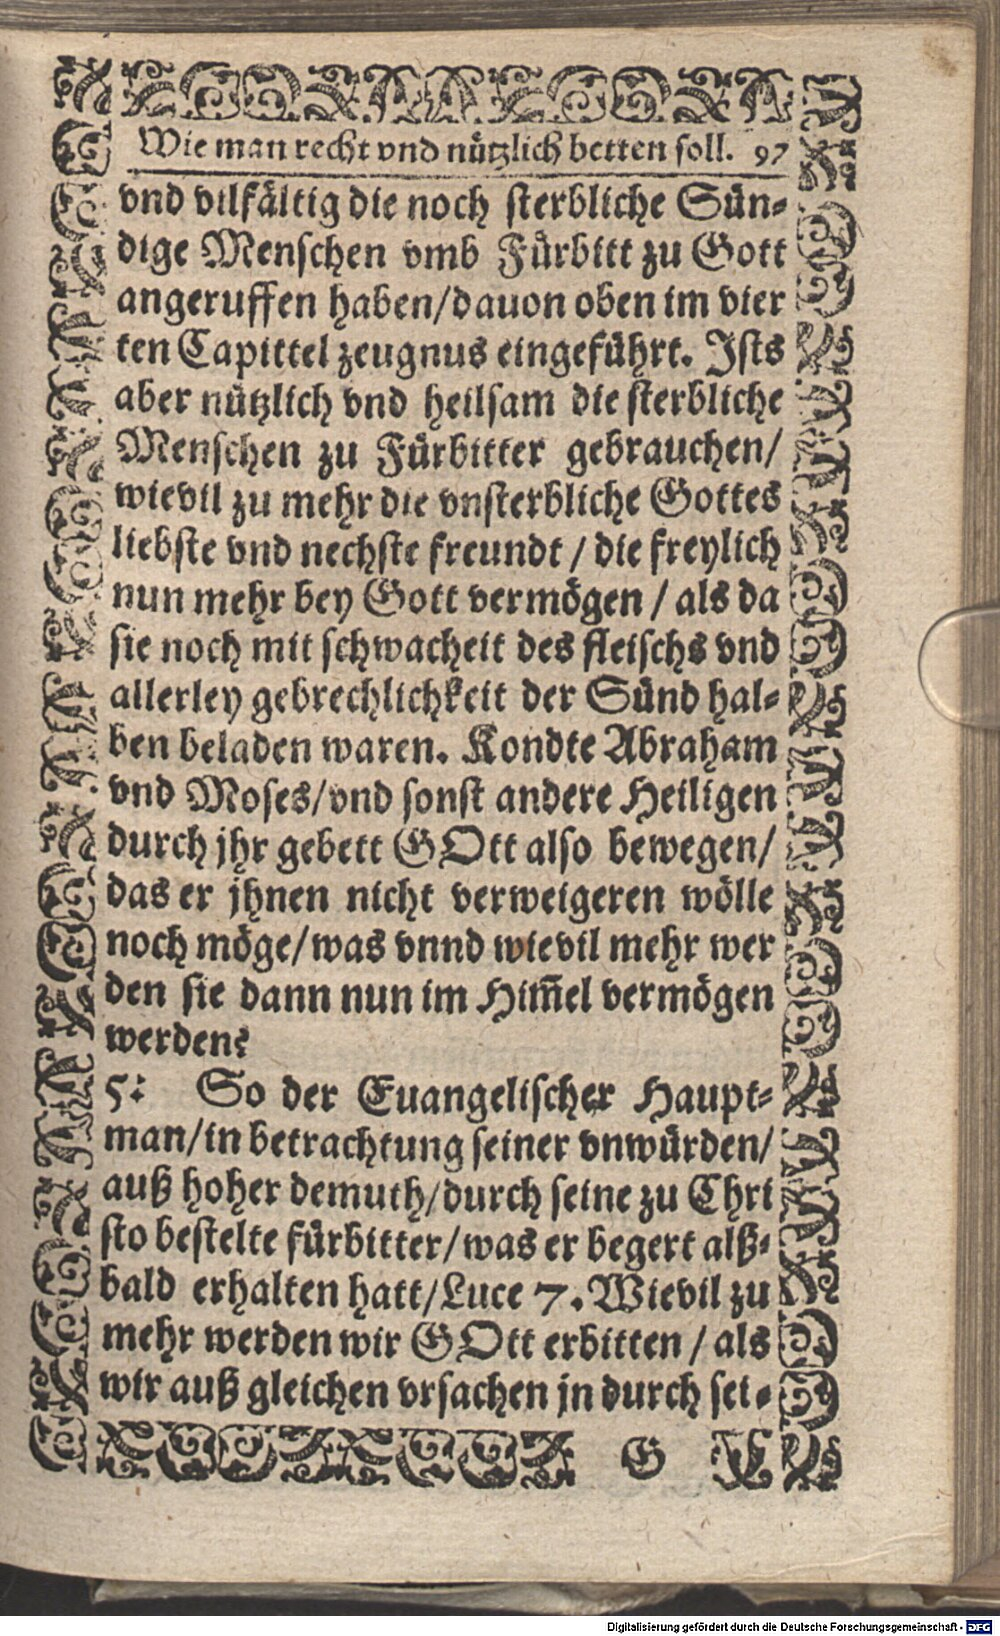 Wie man recht vnd nützlich betten soll. 97
vnd vilfältig die noch sterbliche Sün-
dige Menschen vmb Fürbitt zu Gott
angeruffen haben/dauon oben im vier
ten Capittel zeugnus eingeführt. Ists
aber nützlich vnd heilsam die sterbliche
Menschen zu Fürbitter gebrauchen/
wievil zu mehr die vnsterbliche Gottes
liebste vnd nechste freundt / die freylich
nun mehr bey Gott vermögen / als da
sie noch mit schwacheit des fleischs vnd
allerley gebrechlichkeit der Sünd hal-
ben beladen waren. Kondte Abraham
vnd Moses/vnd sonst andere Heiligen
durch jhr gebett GOtt also bewegen/
das er jhnen nicht verweigeren wölle
noch möge/was vnnd wievil mehr wer
den sie dann nun im Him̅el vermögen
werden?
5: So der Euangelischer Haupt-
man/in betrachtung seiner vnwürden/
auß hoher demuth/durch seine zu Chri
sto bestelte fürbitter/was er begert alß-
bald erhalten hatt/Luce 7. Wievil zu
mehr werden wir GOtt erbitten / als
wir auß gleichen vrsachen jn durch sei-
G
Digitalisierung gefördert durch die Deutsche Forschungsgemeinschaft - DFG